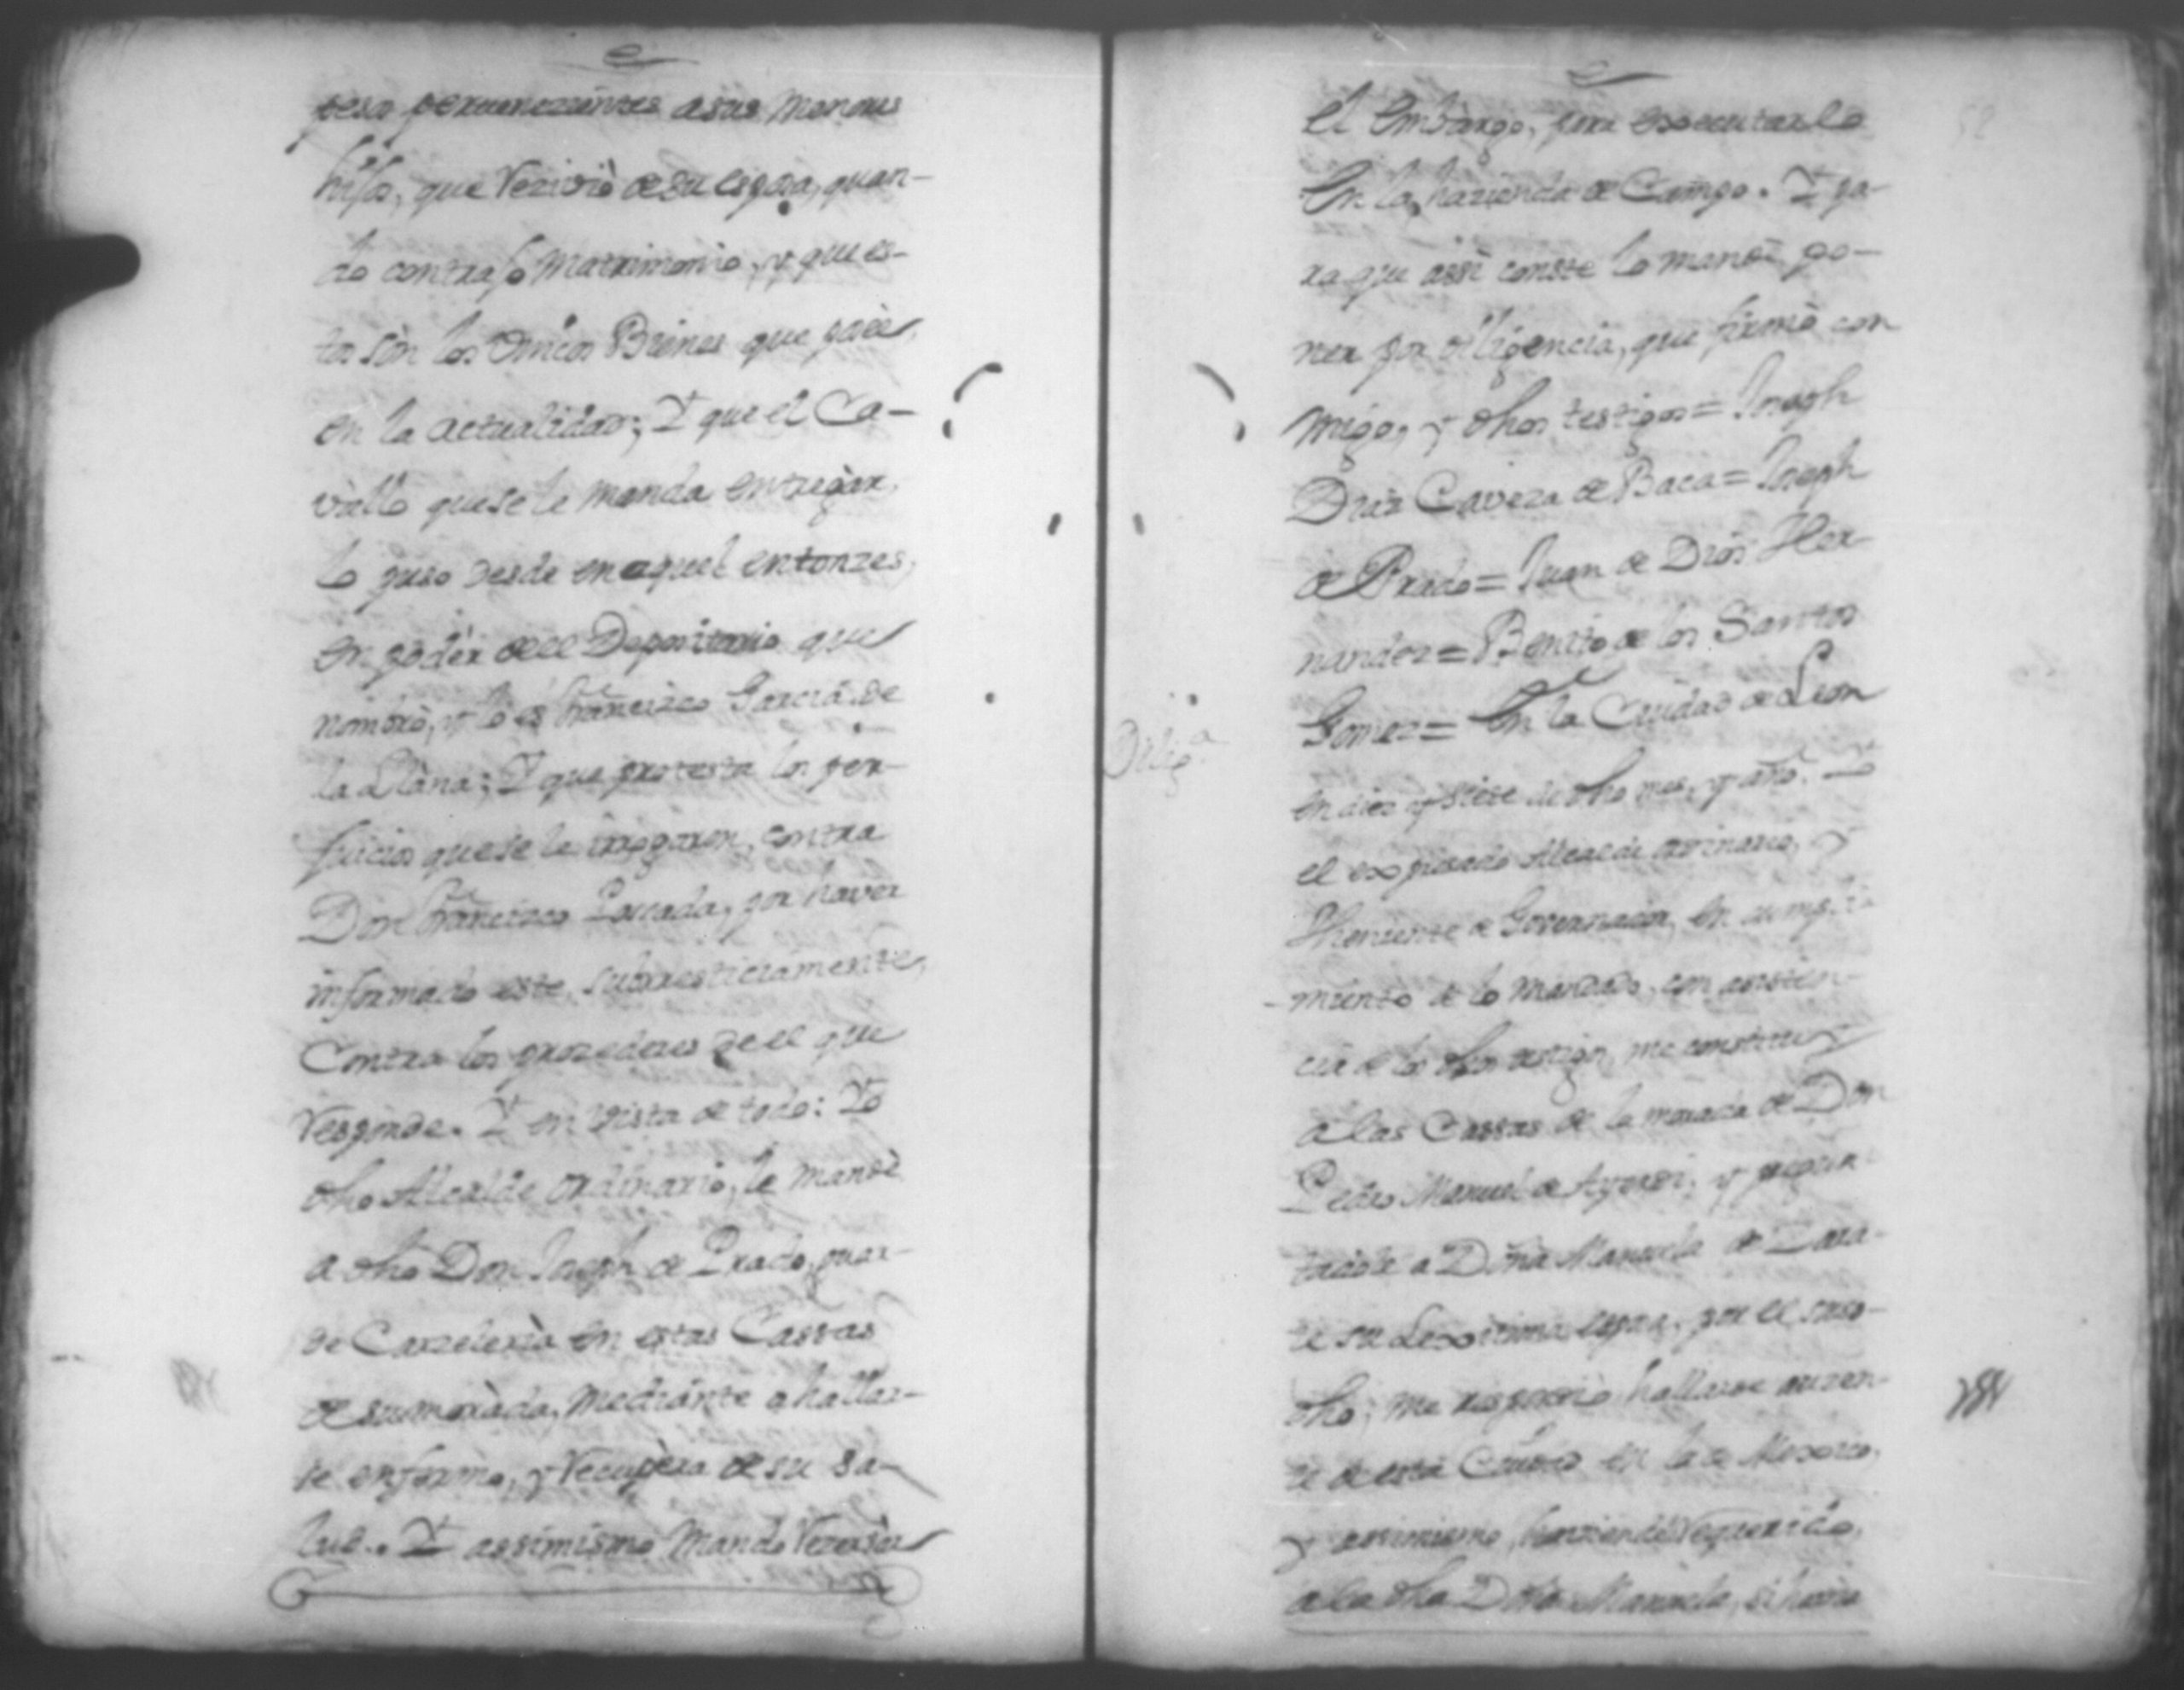 pesa pertenezientes a sus menores
hijos, que rezivio de su esposa, quan-
do contrajo Matrimonio, y que es-
tos son los vnicos Bienes que posee
en la actualidad; Y que el Ca-
vallo que se le manda entregar,
lo puso desde en aquel entonzes,
en poder de el Depositario que
nombrò, y lo es Francisco Garcia de
la Llana; Y que protesta los per-
juicios que se le irrogaren, contra
Don Francisco Posada, por haver
informado este subrresticiamente,
Contra los prozederes de el que
responde. Y en vista de todo: Yo
dho Alcalde ordinario, le mandè
a dho Don Joseph de Prado, guar-
de Carzeleria en estas Cassas
de su moràda, mediante a hallar-
se enfermo, y recupera de su sa-
lud. Y assimismo mando rezervar
el embargo, para executarlo
En la hazienda de Campo. Y pa-
ra que assi conste lo mandè po-
ner por diligencia, que firmò con
migo, y dhos testigos = Joseph
Diaz Caveza de Baca = Joseph
de Prado = Juan de Dios Her-
nandez = Benito de los Santos
Gomez = En la Ciudad de Leon
Dilig.a
en diez y siete de dho mes, y año. Yo
el expresado Alcalde ordinario, y
Theniente de Governador, en cumpli-
miento de lo mandado, con asisten-
cia de los dhos testigos, me constitui
a las Cassas de la morada de Don
Pedro Manuel de
a Doña Manuela de Zara-
te su Lexitima esposa, por el suso-
dho; me respondió hallarse ausen-
te de esta Ciudad en la de Mexico,
y assimismo, haviendo requerido,
a la dha Doña Manuela, si havia